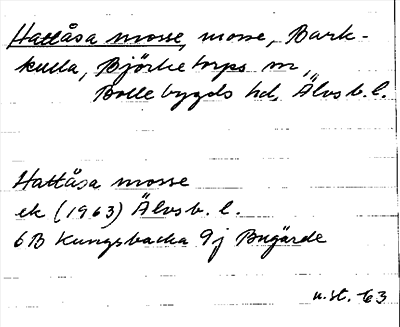 Hattåsa mosse, mosse, Bark-
kulla, Björketorps sn,
Bollebygds hd, Älvsb. l.
Hattåsa mosse
ek (1963) Älvsb. l.
6B Kungsbacka 9j Bugärde
n.st. 63